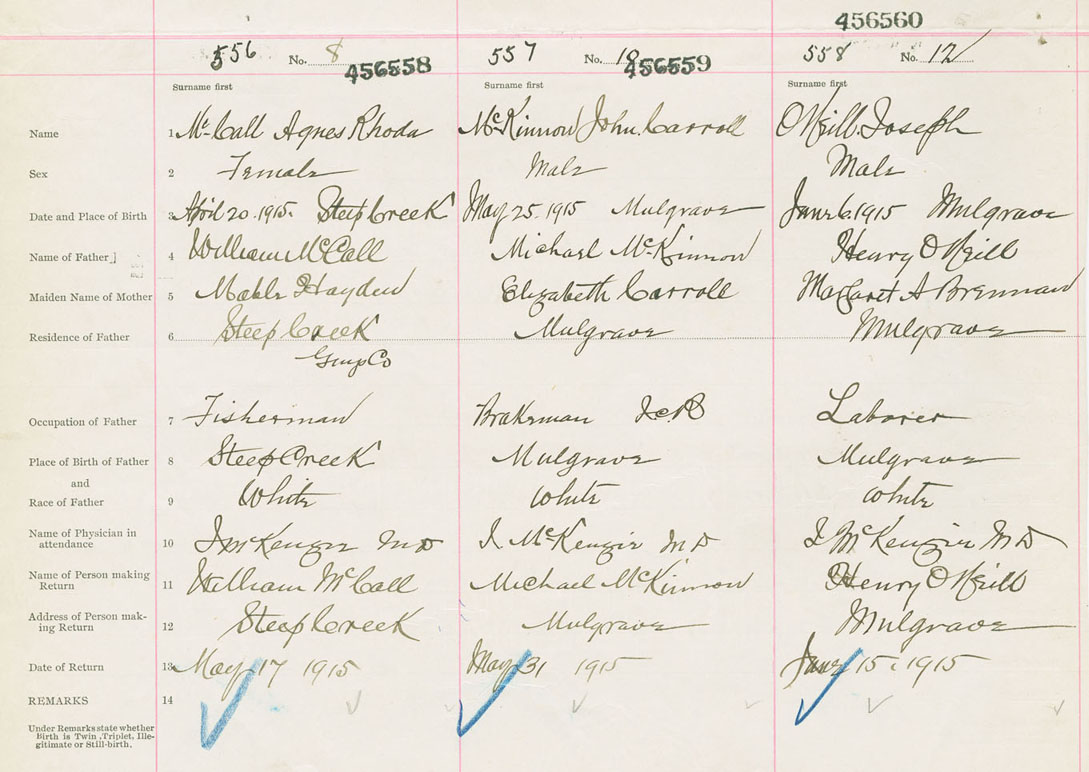 456560
556 No. 8 456558 557 No. 18 456559 558 No. 12
Surname first Surname first Surname first
Name 1 McCall Agnes Rhoda McKinnon John Carroll O'Neill Joseph
Sex 2 Female Male Male
Date and Place of Birth 3 April 20 1915. Steep Creek May 25. 1915 Mulgrave June 6. 1915 Mulgrave
Name of Father 4 William McCall Michael McKinnon Henry O'Neill
Maiden Name of Mother 5 Hayden Elizabeth Carroll Margaret A Brennan
Residence of Father 6 Steep Creek Mulgrave Mulgrave
Guys Co
Occupation of Father 7 Fisherman Brakeman Laborer
Place of Birth of Father 8 Steep Creek Mulgrave Mulgrave
and
Race of Father 9 White White White
Name of Physician in
attendance 10 McKenzie MD McKenzie MD McKenzie MD
Name of Person making
Return 11 William McCall Michael McKinnon Henry O'Neill
Address of Person mak-
ing Return 12 Steep Creek Mulgrave Mulgrave
Date of Return 13 May 17 1915 May 31 1915 June 15, 1915
REMARKS 14
Under Remarks state whether
Birth is Twin, Triplet, Ille-
gitimate or Still-birth.